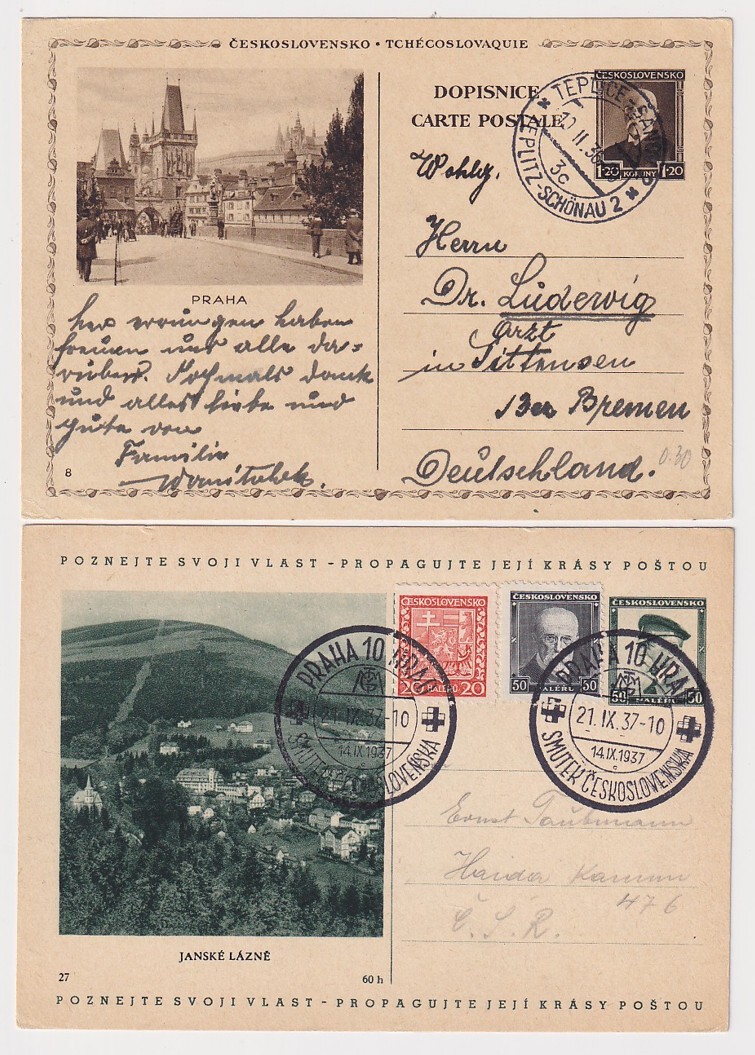 ČESKOSLOVENSKO • TCHÉCOSLOVAQUIE
DOPISNICE
CARTE POSTALE
ČESKOSLOVENSKO
1·20 KORUNY 1·20
TEPLICE-ŠANOV
II. 36
3c
TEPLITZ-SCHÖNAU 2
Wohlg.
Herrn
Dr. Ludewig
Arzt
in Sittensen
Bez Bremen
Deutschland.
0.30
PRAHA
haben
freuen uns alle da=
rüber. Nochmals Dank
und alles Liebe und
Gute von
Familie
8
POZNEJTE SVOJI VLAST - PROPAGUJTE JEJÍ KRÁSY POŠTOU
ČESKOSLOVENSKO
20 HALÉŘŮ 20
ČESKOSLOVENSKO
50 HALÉŘŮ 50
ČESKOSLOVENSKO
50 HALÉŘŮ 50
PRAHA 10 HRAD
TGM
21. IX. 37-10
14.IX.1937
SMUTEK ČESKOSLOVENSKA
PRAHA 10 HRAD
TGM
21. IX. 37-10
14.IX.1937
c
SMUTEK ČESKOSLOVENSKA
Ernst Taubmann
Haida
476
Č. S. R.
JANSKÉ LÁZNĚ
27
60 h
POZNEJTE SVOJI VLAST - PROPAGUJTE JEJÍ KRÁSY POŠTOU